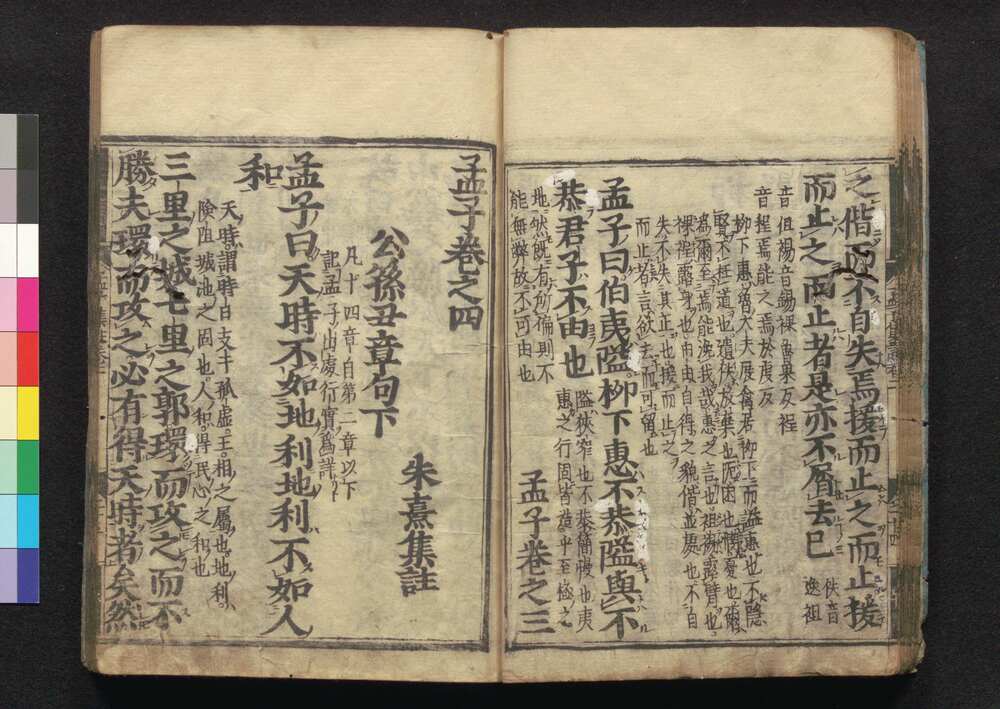 之偕而不自失焉援而止之而止援
而止之而止者是亦不屑去已
佚音
逸袒
音但裼音錫裸魯果反裎
音程焉能之焉於虔反
柳下惠魯大夫展禽居柳下而諡惠也不隱
賢不枉道也遺佚放棄也阨困也憫憂也爾
爲爾至焉能浼我哉惠之言也袒裼露臂也
裸裎露身也由由自得之貌偕並處也不自
失不失其正也援而止之
而止者言欲去而可留也
孟子曰伯夷隘柳下惠不恭隘與不
恭君子不由也
隘狹窄也不恭簡慢也夷
惠之行固皆造乎至極之
地然既有所偏則不
能無弊故不可由也
孟子卷之三
孟子卷之四
朱熹集註
公孫丑章句下
凡十四章自第二章以下
記孟子出處行實爲詳
孟子曰天時不如地利地利不如人
和
天時謂時日支干孤虛王相之屬也地利
險阻城池之固也人和得民心之和也
三里之城七里之郭環而攻之而不
勝夫環而攻之必有得天時者矣然